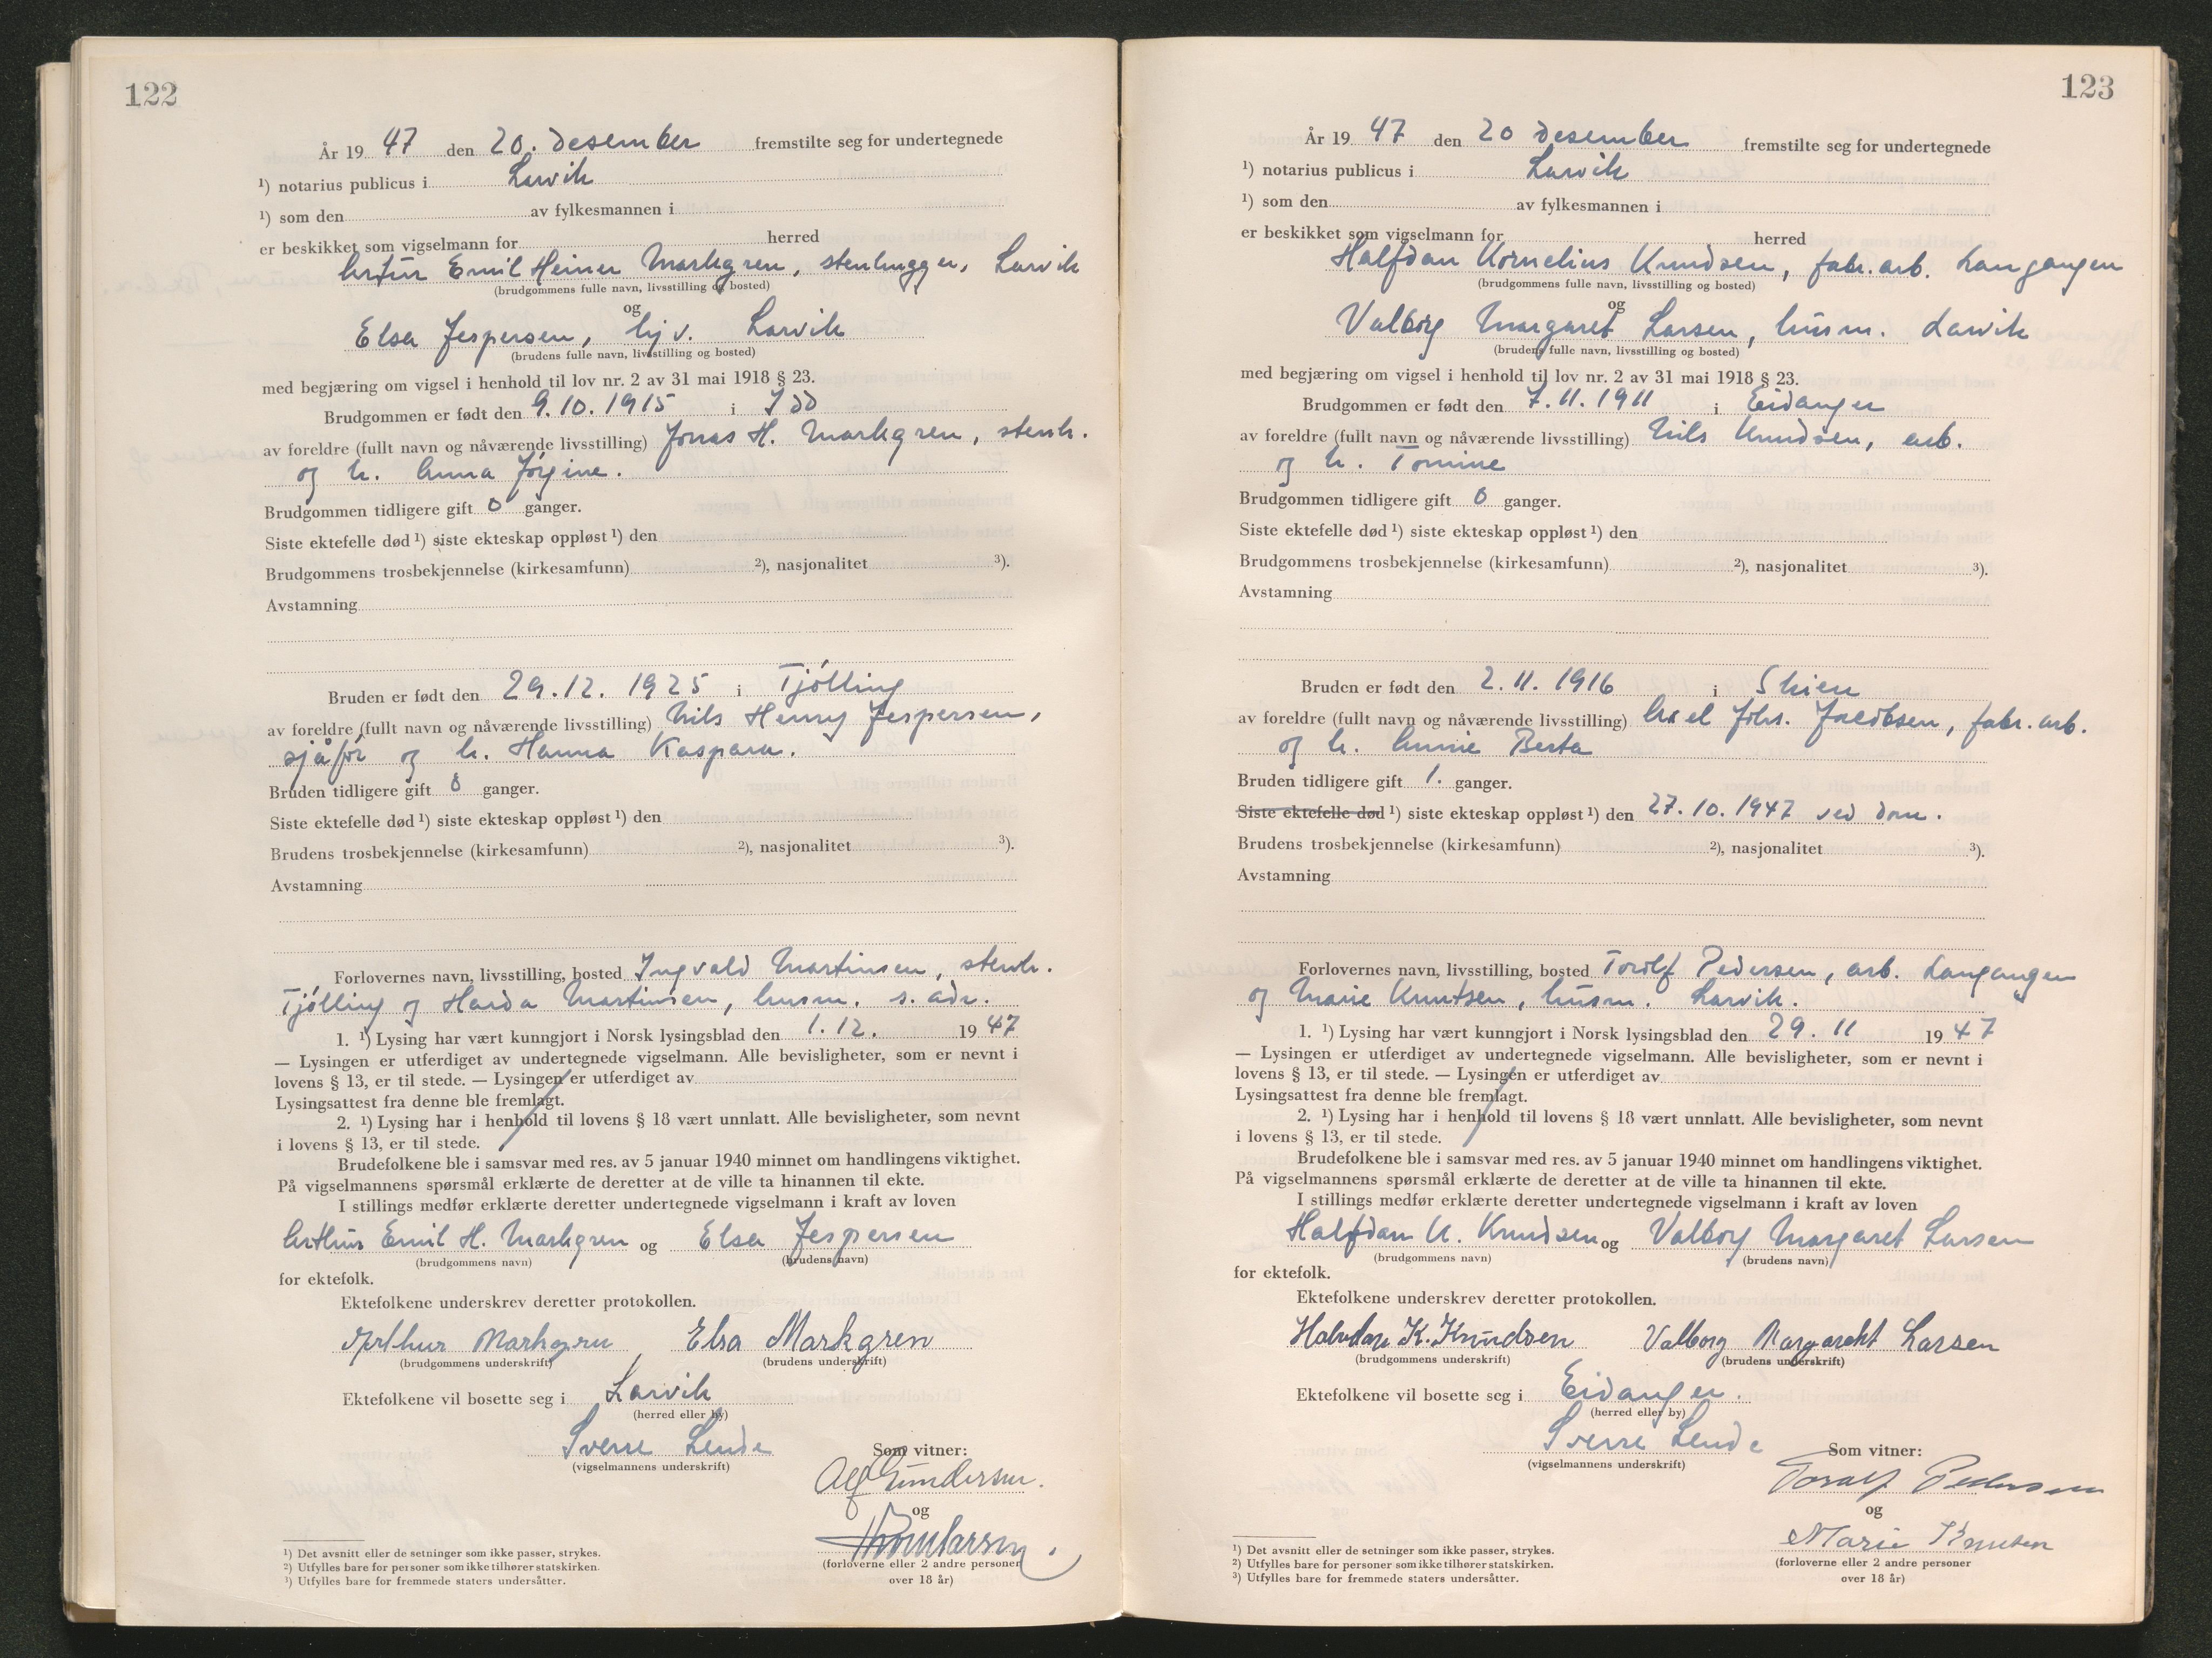 122
År 19 47 den 20. desember fremstilte seg for undertegnede
¹) notarius publicus i Larvik
¹) som den av fylkesmannen i
er beskikket som vigselmann for herred
Artur Emil Heiner Markgren, stenhugger, Larvik
(brudgommens fulle navn, livsstilling og bosted)
og
Elsa Jespersen, hjv. Larvik
(brudens fulle navn, livsstilling og bosted)
med begjæring om vigsel i henhold til lov nr. 2 av 31 mai 1918 § 23.
Brudgommen er født den 9.10.1915 i Idd
av foreldre (fullt navn og nåværende livsstilling) Jonas H. Markgren, stenh.
og h. Anna Jørgine.
Brudgommen tidligere gift 0 ganger.
Siste ektefelle død ¹) siste ekteskap oppløst ¹) den
Brudgommens trosbekjennelse (kirkesamfunn) ²), nasjonalitet ³).
Avstamning
Bruden er født den 29.12. 1925 i Tjølling
av foreldre (fullt navn og nåværende livsstilling) Nils Henry Jespersen,
sjåfør og h. Hanna Kaspara.
Bruden tidligere gift 0 ganger.
Siste ektefelle død ¹) siste ekteskap oppløst ¹) den
Brudens trosbekjennelse (kirkesamfunn) ²), nasjonalitet ³).
Avstamning
Forlovernes navn, livsstilling, bosted Ingvald Martinsen, stenh.
Tjølling og Harda Martinsen, husm. s. adr.
1. ¹) Lysing har vært kunngjort i Norsk lysingsblad den 1.12. 19 47
— Lysingen er utferdiget av undertegnede vigselmann. Alle bevisligheter, som er nevnt i
lovens § 13, er til stede. — Lysingen er utferdiget av
Lysingsattest fra denne ble fremlagt.
2. ¹) Lysing har i henhold til lovens § 18 vært unnlatt. Alle bevisligheter, som nevnt
i lovens § 13, er til stede.
Brudefolkene ble i samsvar med res. av 5 januar 1940 minnet om handlingens viktighet.
På vigselmannens spørsmål erklærte de deretter at de ville ta hinannen til ekte.
I stillings medfør erklærte deretter undertegnede vigselmann i kraft av loven
Arthur Emil H. Markgren og Elsa Jespersen
(brudgommens navn) (brudens navn)
for ektefolk.
Ektefolkene underskrev deretter protokollen.
Arthur Markgren Elsa Markgren
(brudgommens underskrift) (brudens underskrift)
Ektefolkene vil bosette seg i Larvik
(herred eller by)
Sverre Lende
(vigselmannens underskrift)
Som vitner:
Alf Gundersen.
og
(forloverne eller 2 andre personer
over 18 år)
¹) Det avsnitt eller de setninger som ikke passer, strykes.
²) Utfylles bare for personer som ikke tilhører statskirken.
³) Utfylles bare for fremmede staters undersåtter.
123
År 19 47 den 20 desember fremstilte seg for undertegnede
¹) notarius publicus i Larvik
¹) som den av fylkesmannen i
er beskikket som vigselmann for herred
Halfdan Kornelius Knudsen, fabr.arb. Langangen
(brudgommens fulle navn, livsstilling og bosted)
og
Valborg Margaret Larsen, husm. Larvik
(brudens fulle navn, livsstilling og bosted)
med begjæring om vigsel i henhold til lov nr. 2 av 31 mai 1918 § 23.
Brudgommen er født den 7.11.1911 i Eidanger
av foreldre (fullt navn og nåværende livsstilling) Nils Knudsen, arb.
og h. Tomine
Brudgommen tidligere gift 0 ganger.
Siste ektefelle død ¹) siste ekteskap oppløst ¹) den
Brudgommens trosbekjennelse (kirkesamfunn) ²), nasjonalitet ³).
Avstamning
Bruden er født den 2.11.1916 i Skien
av foreldre (fullt navn og nåværende livsstilling) Axel Johs. Jacobsen, fabr.arb.
og h. Annie Berta
Bruden tidligere gift 1. ganger.
Siste ektefelle død ¹) siste ekteskap oppløst ¹) den 27.10.1947 ved dom.
Brudens trosbekjennelse (kirkesamfunn) ²), nasjonalitet ³).
Avstamning
Forlovernes navn, livsstilling, bosted Torolf Pedersen, arb. Langangen
og Marie Knutsen, husm. Larvik.
1. ¹) Lysing har vært kunngjort i Norsk lysingsblad den 29. 11 19 47
— Lysingen er utferdiget av undertegnede vigselmann. Alle bevisligheter, som er nevnt i
lovens § 13, er til stede. — Lysingen er utferdiget av
Lysingsattest fra denne ble fremlagt.
2. ¹) Lysing har i henhold til lovens § 18 vært unnlatt. Alle bevisligheter, som nevnt
i lovens § 13, er til stede.
Brudefolkene ble i samsvar med res. av 5 januar 1940 minnet om handlingens viktighet.
På vigselmannens spørsmål erklærte de deretter at de ville ta hinannen til ekte.
I stillings medfør erklærte deretter undertegnede vigselmann i kraft av loven
Halfdan K. Knudsen og Valborg Margaret Larsen
(brudgommens navn) (brudens navn)
for ektefolk.
Ektefolkene underskrev deretter protokollen.
Halvdan K. Knudsen Valborg Margareht Larsen
(brudgommens underskrift) (brudens underskrift)
Ektefolkene vil bosette seg i Eidanger.
(herred eller by)
Sverre Lende
(vigselmannens underskrift)
Som vitner:
Toralf Pedersen
og
Marie Knutsen
(forloverne eller 2 andre personer
over 18 år)
¹) Det avsnitt eller de setninger som ikke passer, strykes.
²) Utfylles bare for personer som ikke tilhører statskirken.
³) Utfylles bare for fremmede staters undersåtter.